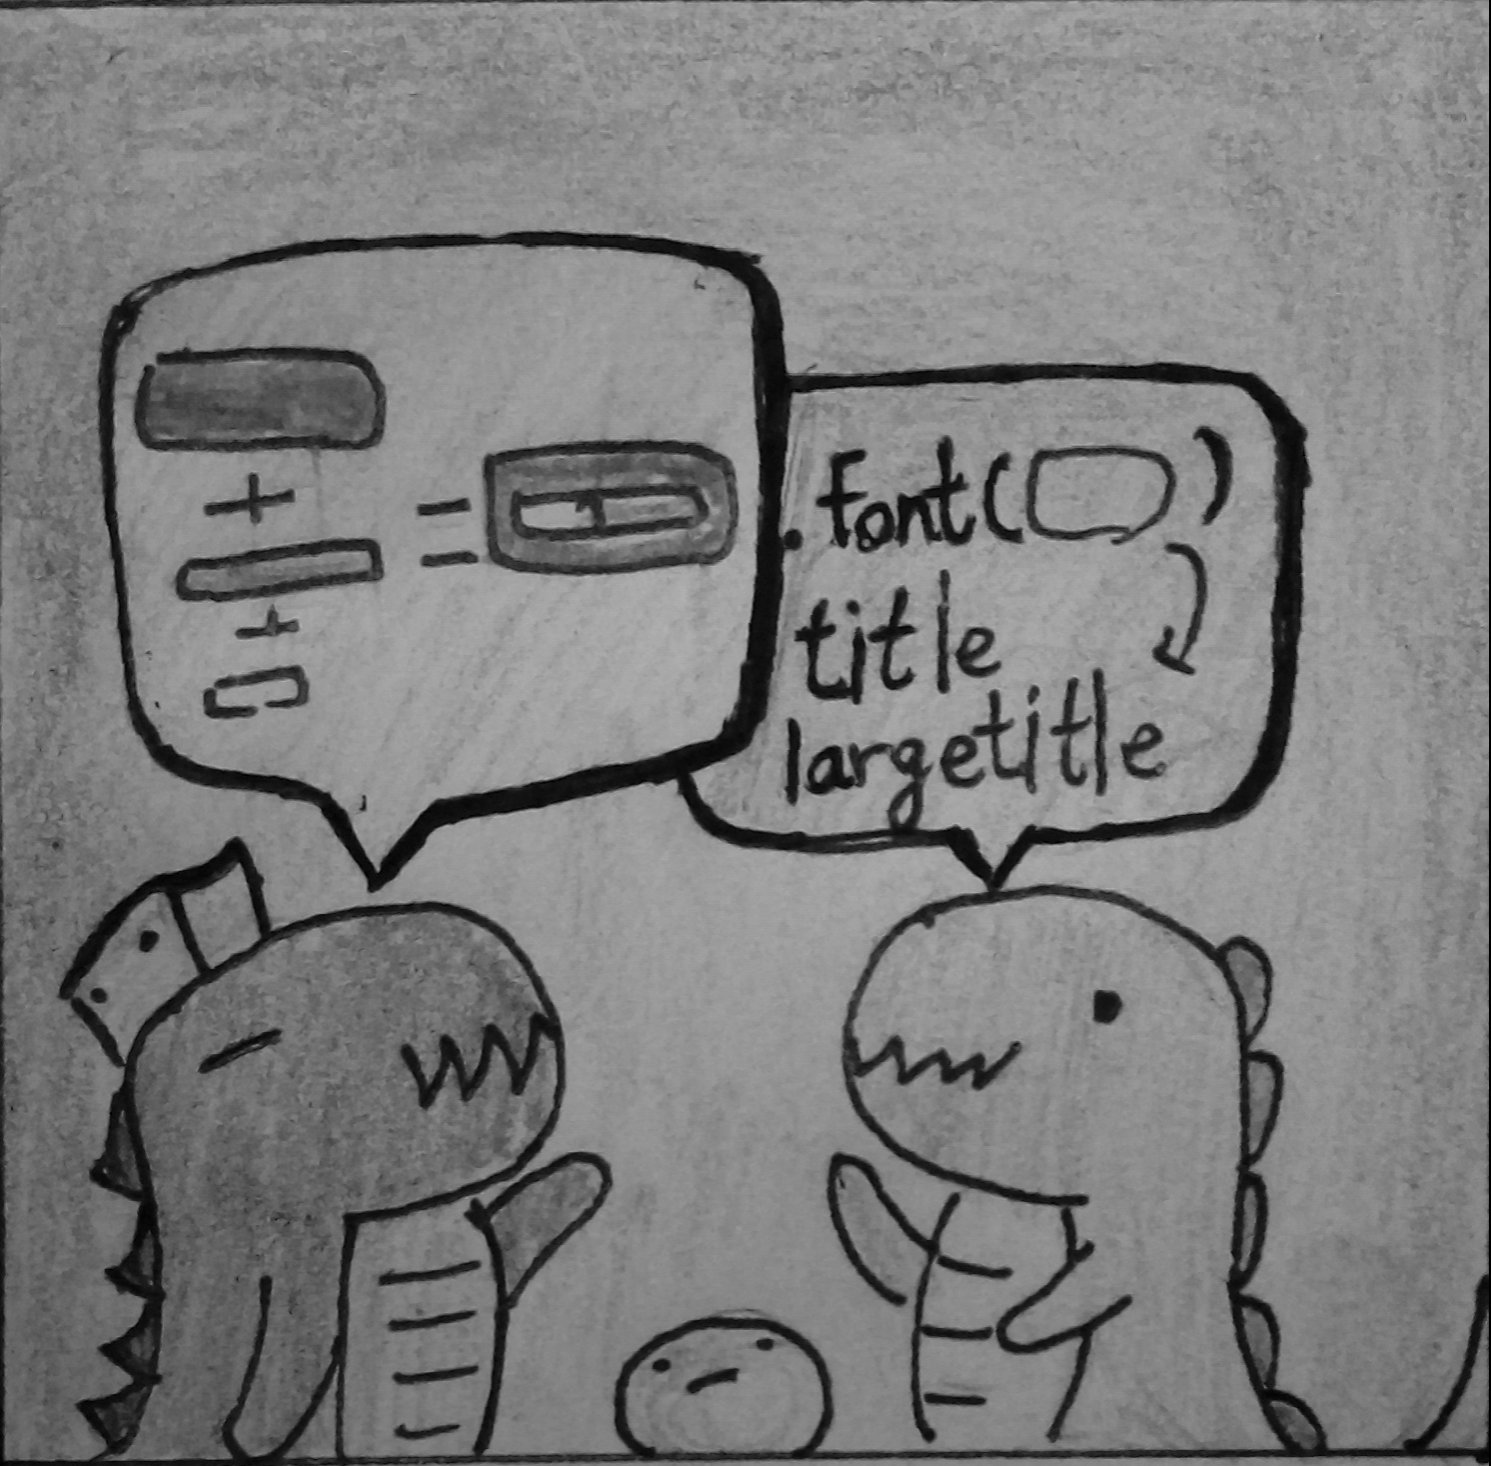 +
=
+
.font( )
title
largetitle